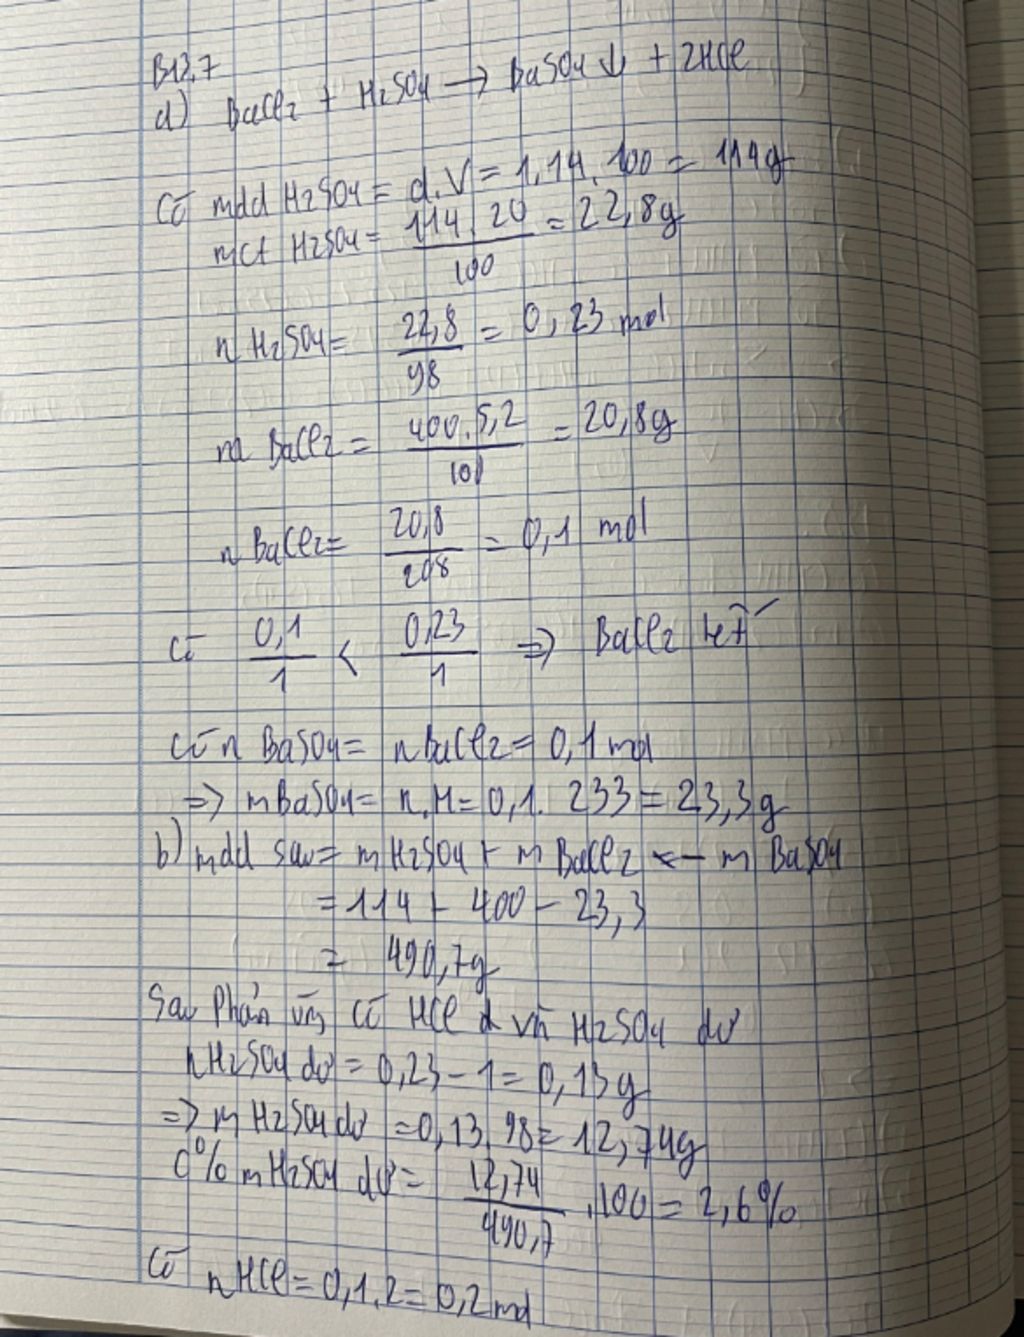 B13.7
a) BaCl2 + H2SO4 → BaSO4 ↓ + 2HCl
Có mdd H2SO4 = d.V = 1,14.100 = 114g
mct H2SO4 = 114.20/100 = 22,8g
n H2SO4 = 22,8/98 = 0,23 mol
m BaCl2 = 400.5,2/100 = 20,8g
n BaCl2 = 20,8/208 = 0,1 mol
Có 0,1/1 < 0,23/1 ⇒ BaCl2 hết
Có n BaSO4 = n BaCl2 = 0,1 mol
=> m BaSO4 = n.M = 0,1. 233 = 23,3g
b) mdd sau = m H2SO4 + m BaCl2 - m BaSO4
= 114 + 400 - 23,3
= 490,7g
Sau phản ứng có HCl và H2SO4 dư
nH2SO4 dư = 0,23 - 1 = 0,13g
=> m H2SO4 dư = 0,13.98 = 12,74g
C% mH2SO4 dư = 12,74/490,7 .100 = 2,6%
Có nHCl = 0,1.2 = 0,2 mol